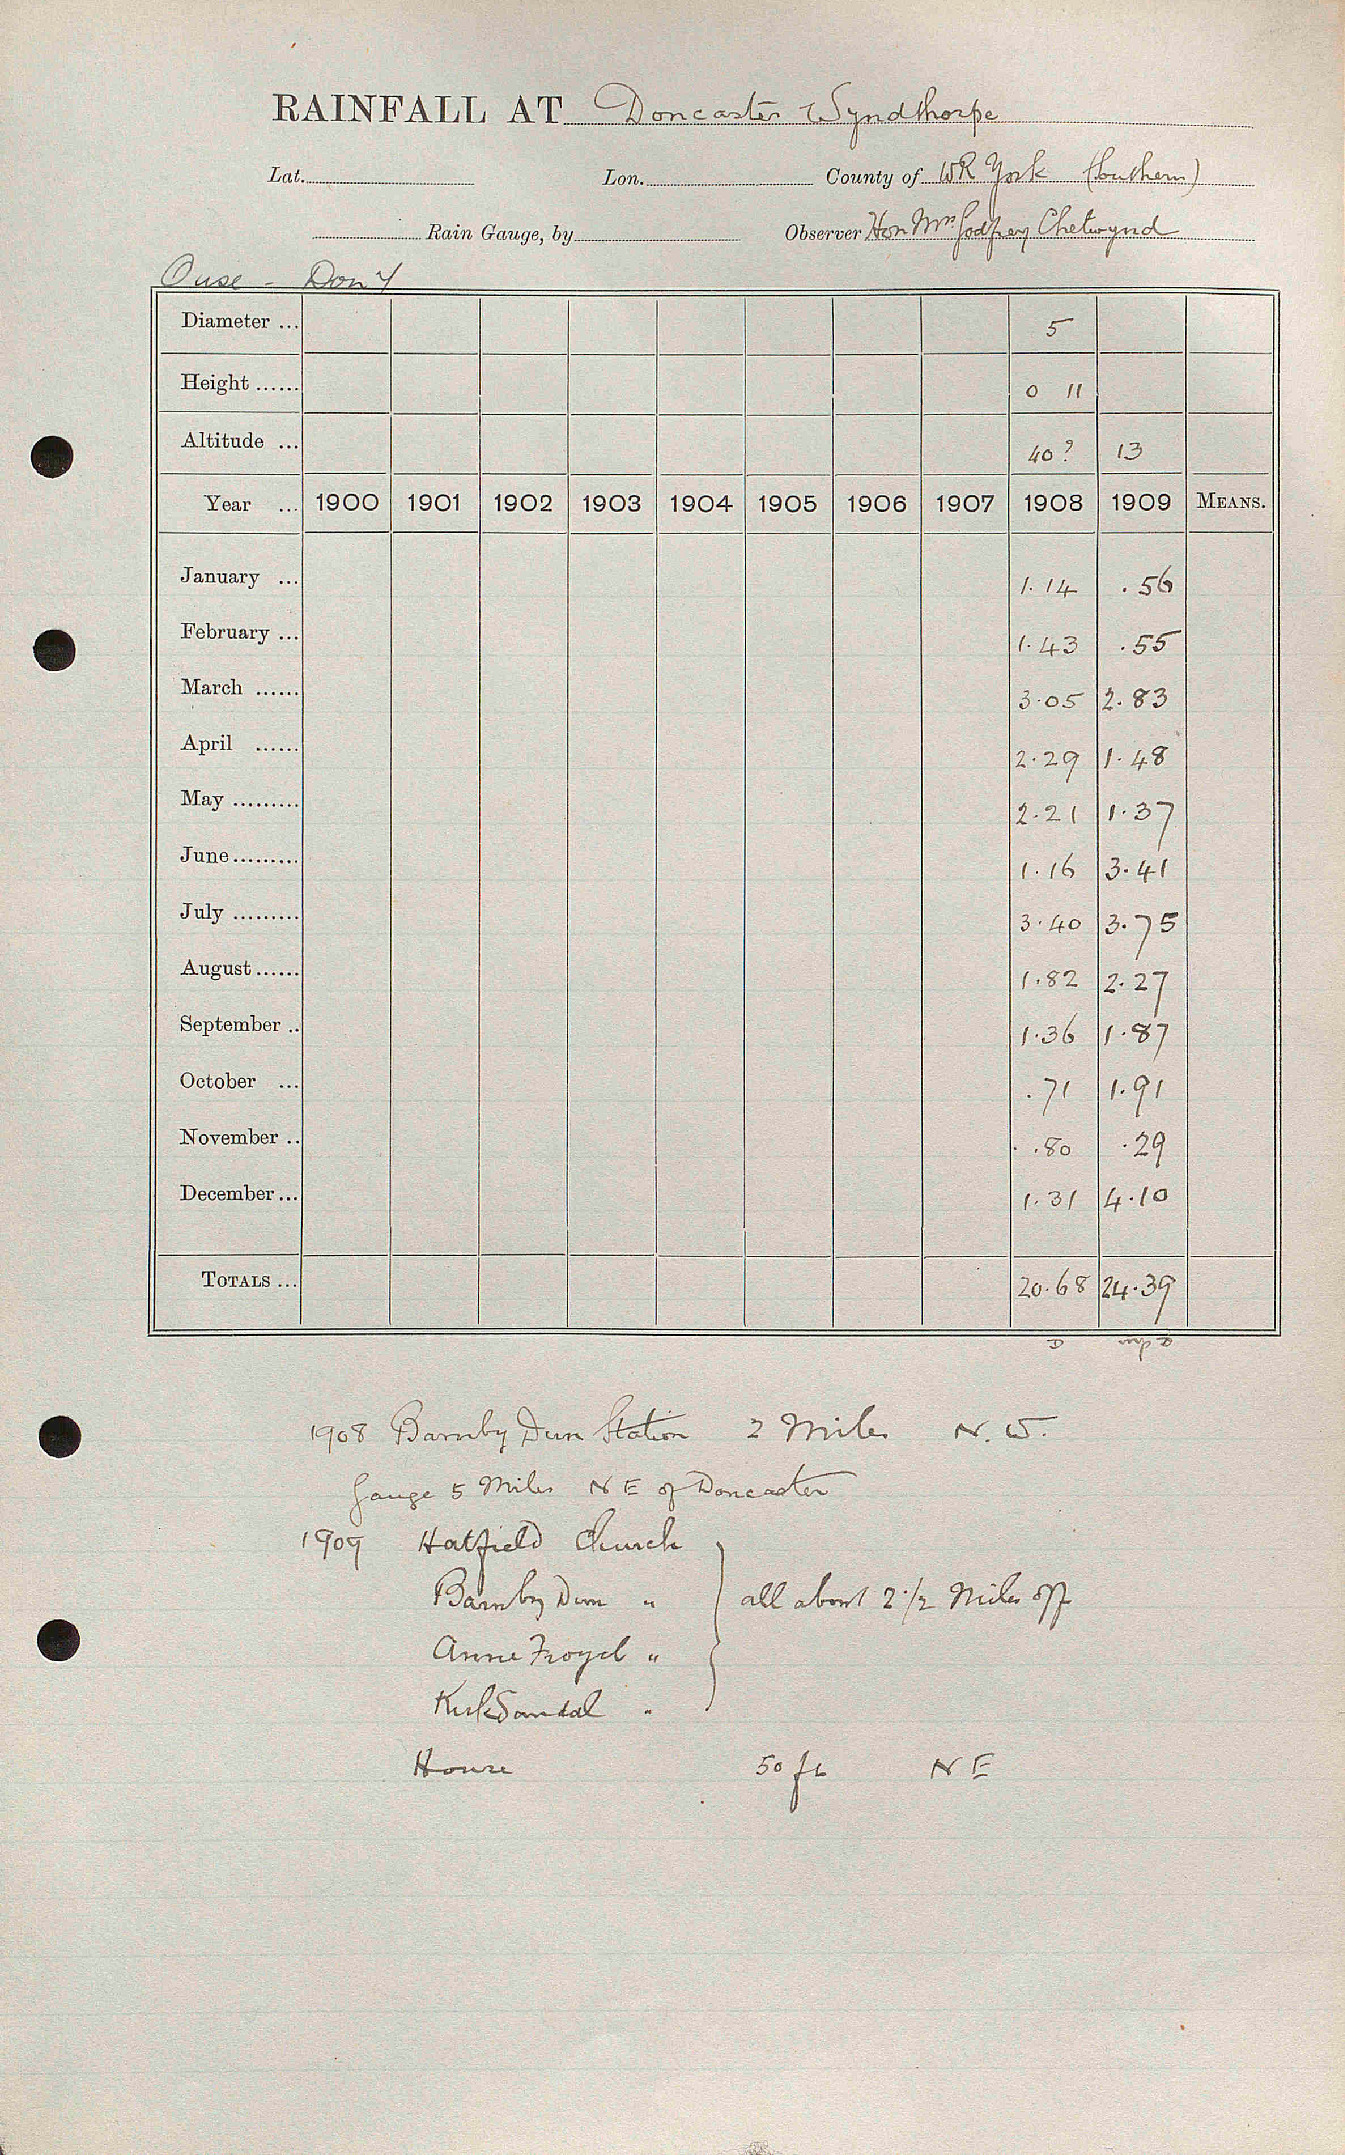 RAINFALL AT Doncaster Wyndthorpe
Lat. Lon. County of WR York (Southern)
Rain Gauge, by Observer Hon Mrs Godfrey Chetwynd
Ouse - Don 4
Diameter ... 5
Height ...... 0 11
Altitude ... 40? 13
Year ... 1900 1901 1902 1903 1904 1905 1906 1907 1908 1909 MEANS.
January ... 1.14 .56
February ... 1.43 .55
March ...... 3.05 2.83
April ...... 2.29 1.48
May ......... 2.21 1.37
June ......... 1.16 3.41
July ......... 3.40 3.75
August ...... 1.82 2.27
September .. 1.36 1.87
October ... .71 1.91
November .. .80 .29
December ... 1.31 4.10
TOTALS ... 20.68 24.39
1908 Barnby Dun Station 2 Miles N.W.
Gauge 5 Miles NE of Doncaster
1909 Hatfield Church
Barnby Dun " all about 2 1/2 Miles off
Anne Froyd "
Kirk Sandal "
House 50 ft NE